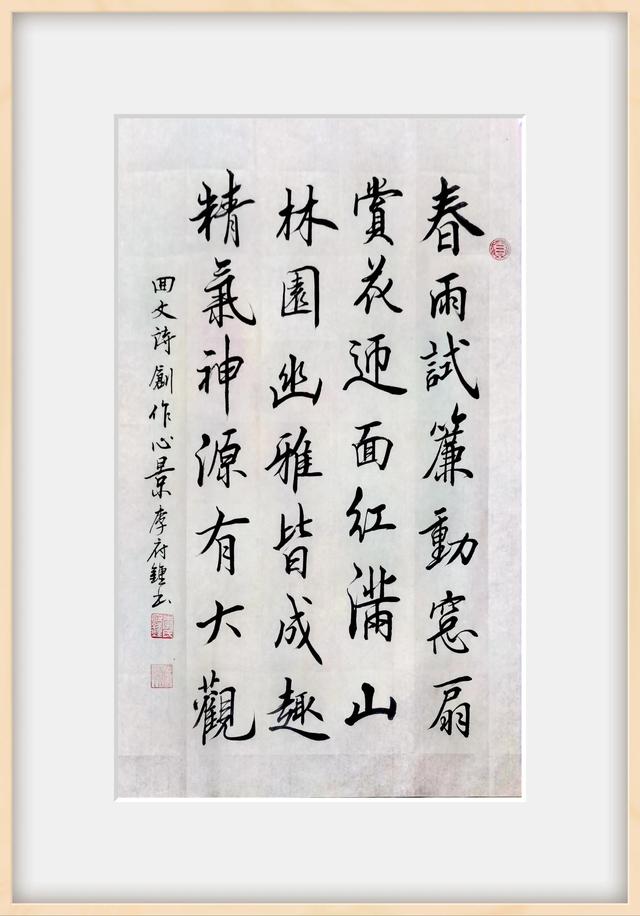 春雨試簾動窓扇
賞花迎面紅滿山
林園幽雅皆成趣
精氣神源有大觀
回文詩創作心景李府鍾书